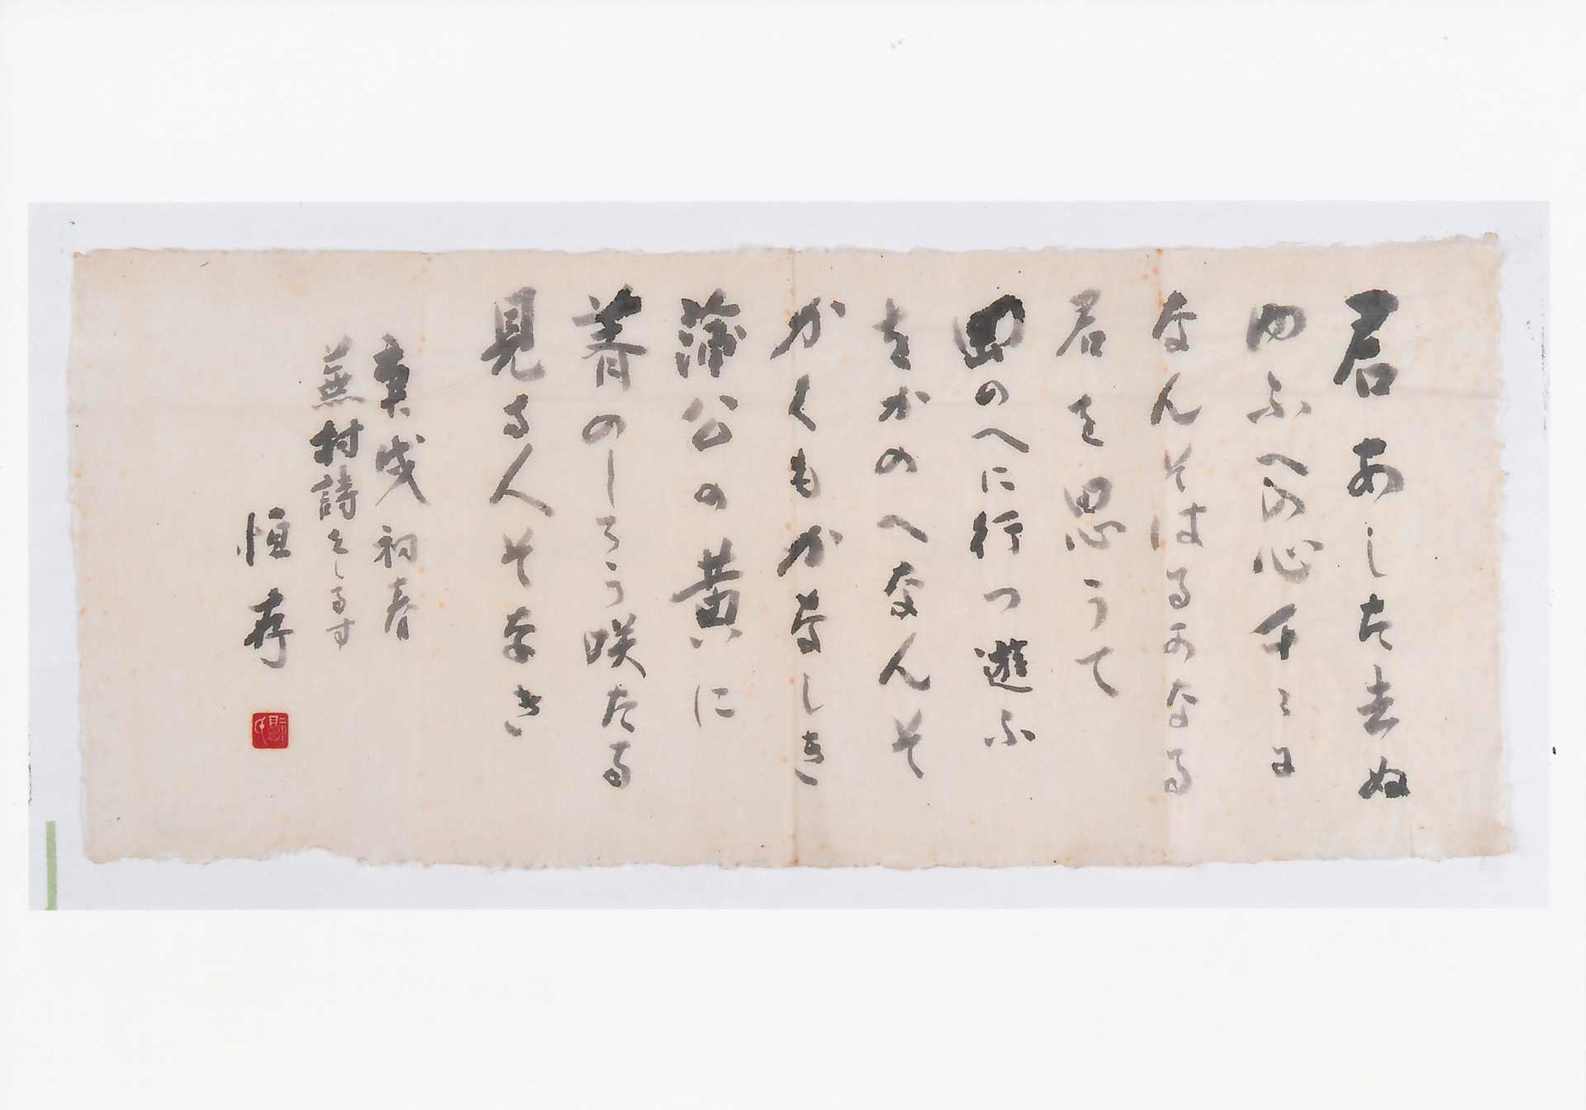 君あした去ぬ
ゆふへの心千〻に
なんそはるかなる
君を思うて
岡のへに行つ遊ふ
をかのへなんそ
かくもかなしき
蒲公の黄に
薺のしろう咲たる
見る人そなき
庚戌初春
蕪村詩をしるす
恒存